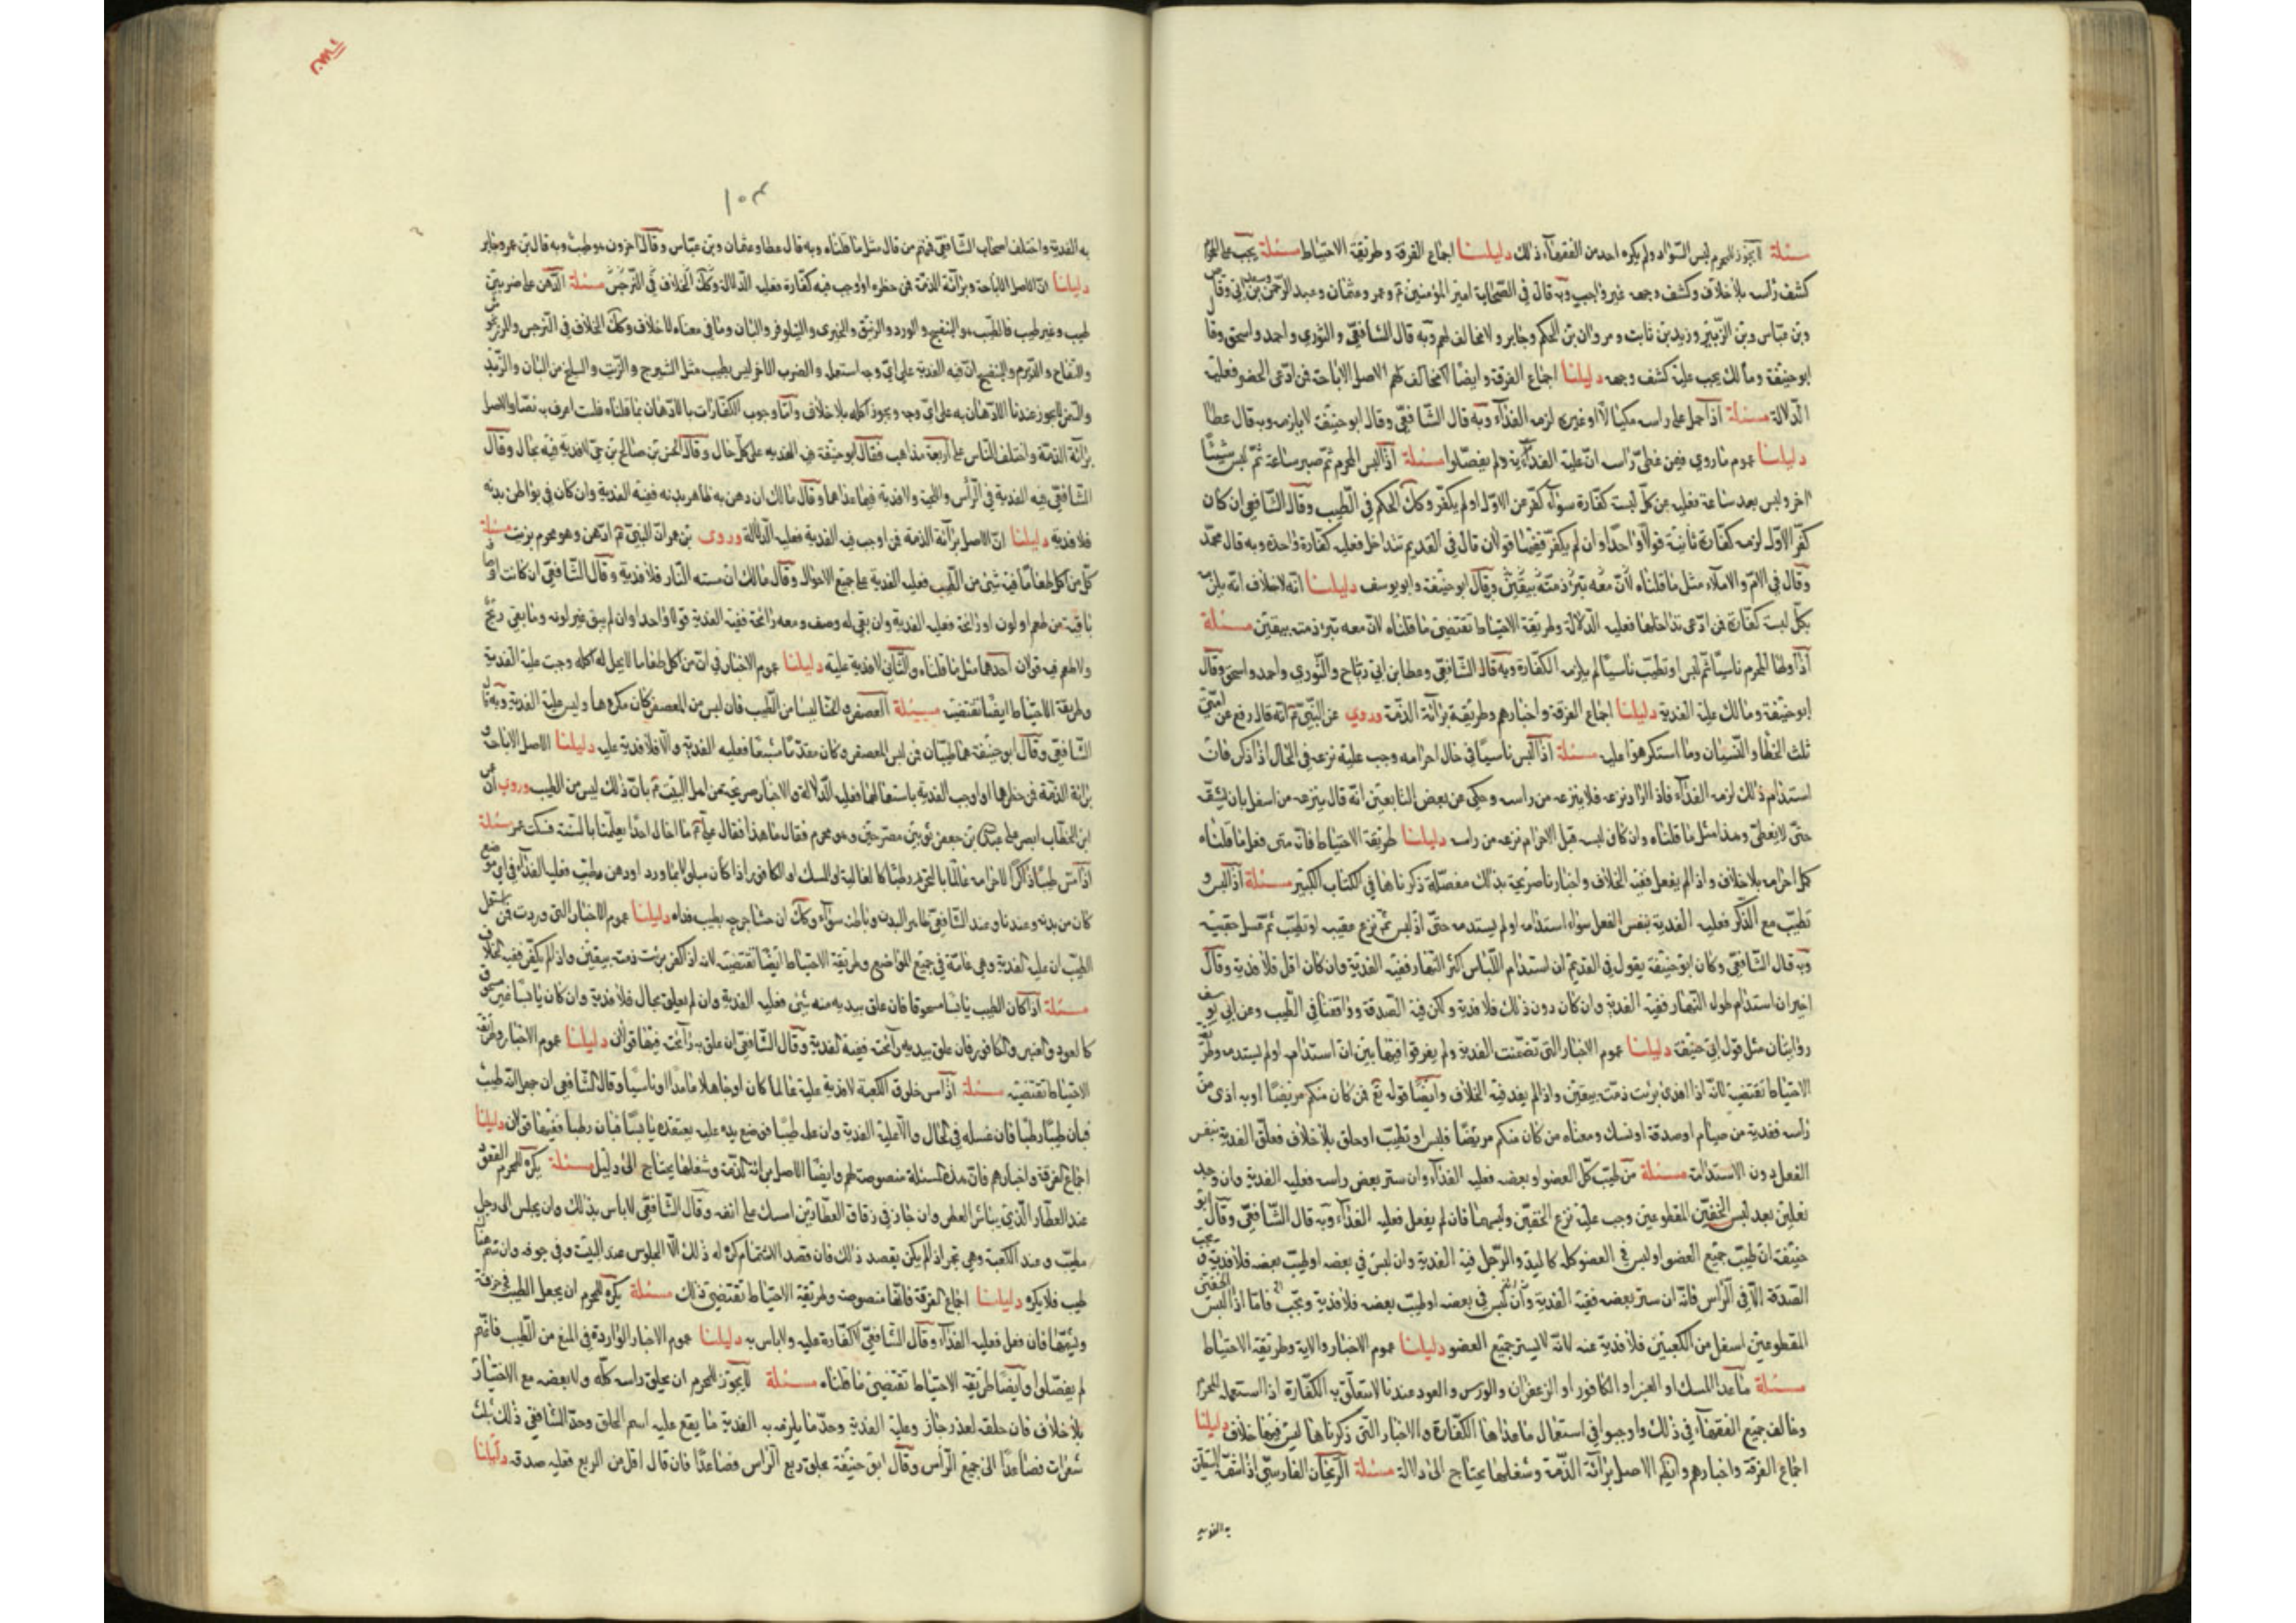 مسئلة لا يجوز للمحرم لبس السواد ولم يكره احد من الفقهاء ذلك دليلنا اجماع الفرقة وطريقة الاحتياط مسئلة يجب على المحرم
كشف راسه بلا خلاف وكشف وجهه غير واجب وبه قال في الصحابة امير المؤمنين ع وعمر وعثمان وعبد الرحمن بن
وبن عباس وبن الزبير وزيد بن ثابت ومروان بن الحكم وجابر ولا مخالف لهم وبه قال الشافعي والثوري واحمد واسحق وقا
ابو حنيفة ومالك يجب عليه كشف وجهه دليلنا اجماع الفرقة وايضا الاصل الاباحة فمن ادعى الحضر فعليه
الدلالة مسئلة اذا حمل على راسه مكتلا او غيره لزمه الفداء وبه قال الشافعي وقال ابو حنيفة لا يلزمه وبه قال عطا
دليلنا عموم ما روي فيمن غطى راسه ان عليه الفدية ولم يفصلوا مسئلة اذا لبس المحرم ثم صبر ساعة ثم لبس شيئا
اخر ولبس بعد ساعة فعليه عن كل لبسة كفارة سواء كفر عن الاول او لم يكفر وكك الحكم في الطيب وقال الشافعي ان كان
كفر الاول لزمه كفارة ثانية قولا واحدا وان لم يكفر ففيها قولان قال في القديم تتداخل فعليه كفارة واحدة وبه قال محمد
وقال في الام والاملاء مثل ما قلناه لان معه تبرء ذمته بيقين وقال ابو حنيفة وابو يوسف دليلنا انه لا خلاف انه يلزم
بكل لبسة كفارة فمن ادعى تداخلها فعليه الدلالة وطريقة الاحتياط تقتضى ما قلناه لان معه تبرء ذمته بيقين مسئلة
اذا وطئ المحرم ناسيا ثم لبس او تطيب ناسيا لم يلزمه الكفارة وبه قال الشافعي وعطا بن ابي رباح والثوري واحمد واسحق وقال
ابو حنيفة ومالك عليه الفدية دليلنا اجماع الفرقة واخبارهم وطريقة برائة الذمة وروي عن النبي ص انه قال رفع عن امتي
ثلث الخطا والنسيان وما استكرهوا عليه مسئلة اذا لبس ناسيا في حال احرامه وجب عليه نزعه في الحال اذا ذكر فان
استدام ذلك لزمه الفداء فاذا اراد نزعه فلا ينزعه من راسه وحكي عن بعض التابعين انه قال ينزعه من اسفل بان يشقه
حتى لا يغطى وهذا مثل ما قلناه وان كان لبسه قبل الاحرام نزعه من راسه دليلنا طريقة الاحتياط فانه متى فعل ما قلناه
كمل احرامه بلا خلاف واذا لم يفعل ففيه الخلاف واخبارنا صريحة بذلك مفصلة ذكرناها في الكتاب الكبير مسئلة اذا لبس و
تطيب مع الذكر فعليه الفدية بنفس الفعل سواء استدامه او لم يستدمه حتى اذا لبس ثم نزع عقيبه او تطيب ثم غسل عقيبه
وبه قال الشافعي وكان ابو حنيفة يقول في القديم ان استدام اللباس اكثر النهار ففيه الفدية وان كان اقل فلا فدية وقال
اخيرا ان استدام طول النهار ففيه الفدية وان كان دون ذلك فلا فدية ولكن فيه الصدقة ووافقنا في الطيب وعن ابي يوسف
روايتان مثل قول ابي حنيفة دليلنا عموم الاخبار التي تضمنت الفدية ولم يفرقوا فيها بين ان استدام او لم يستدمه وطريقة
الاحتياط تقتضيه لانه اذا افدى برئت ذمته بيقين واذا لم يفد فيه الخلاف وايضا قوله تع فمن كان منكم مريضا او به اذى من
راسه ففدية من صيام او صدقة او نسك ومعناه من كان منكم مريضا فلبس او تطيب او حلق بلا خلاف فعلق الفدية بنفس
الفعل دون الاستدامة مسئلة من طيب كل العضو او بعضه فعليه الفداء وان ستر بعض راسه فعليه الفدية وان وجد
نعلين بعد لبس الخفين المقطوعين وجب عليه نزع الخفين ولبسهما فان لم يفعل فعليه الفداء وبه قال الشافعي وقال ابو
حنيفة ان طيب جميع العضو او لبس في العضو كله كاليد والرجل فيه الفدية وان لبس في بعضه او طيب بعضه فلا فدية و
الصدقة الا في الراس فانه ان ستر بعضه ففيه الفدية وان لبس في بعضه او طيب بعضه فلا فدية وتجب فاما اذا لبس الخفين
المقطوعين اسفل من الكعبين فلا فدية عنه لانه لا يستر جميع العضو دليلنا عموم الاخبار والاية وطريقة الاحتياط
مسئلة ما عدا المسك او العنبر او الكافور او الزعفران والورس والعود عندنا لا يتعلق به الكفارة اذا استعمله المحرم
وخالف جميع الفقهاء في ذلك واوجبوا في استعمال ما عداها الكفارة والاخبار التي ذكرناها ليس فيها خلاف دليلنا
اجماع الفرقة واخبارهم وايضا الاصل برائة الذمة وشغلها يحتاج الى دلالة مسئلة الريحان الفارسي
به الفدية
١٠٣
به الفدية واختلف اصحاب الشافعي فمنهم من قال مثل ما قلناه وبه قال عطا وعثمان وبن عباس وقال اخرون هو طيب وبه قال بن عمر وجابر
دليلنا ان الاصل الاباحة وبرائة الذمة فمن حظره او اوجب فيه كفارة فعليه الدلالة وكك الخلاف في النرجس مسئلة الدهن على ضربين
طيب وغير طيب فالطيب هو البنفسج والورد والزنبق والخيرى والنيلوفر والبان وما في معناه لا خلاف وكك الخلاف في النرجس والمرزنجوش
والتفاح والبنفسج ان فيه الفدية على اي وجه استعمله والضرب الاخر ليس بطيب مثل الشيرج والزيت والسليخ من البان والزبد
والسمن لا يجوز عندنا الادهان به على اي وجه ويجوز اكله بلا خلاف واما وجوب الكفارات بالادهان بما قلناه فلست اعرف به نصا والاصل
برائة الذمة واختلف الناس على اربعة مذاهب فقال ابو حنيفة فيه الفدية على كل حال وقال الحسن بن صالح بن حي لا فدية فيه بحال وقال
الشافعي فيه الفدية في الراس واللحية ولا فدية فيما عداهما وقال مالك ان دهن به ظاهر بدنه ففيه الفدية وان كان في بواطن بدنه
فلا فدية دليلنا ان الاصل برائة الذمة فمن اوجب فيه الفدية فعليه الدلالة وروى بن عمر ان النبي ص ادهن وهو محرم بزيت مسئلة
من اكل طعاما فيه شئ من الطيب فعليه الفدية على جميع الاحوال وقال مالك ان مسته النار فلا فدية وقال الشافعي ان كانت اوصافه
باقية من طعم او لون او رائحة فعليه الفدية وان بقي له وصف ومعه رائحة ففيه الفدية قولا واحدا وان لم يبق غير لونه وما بقي ريح
ولا طعم فيه قولان احدهما مثل ما قلناه والثاني لا فدية عليه دليلنا عموم الاخبار في ان من اكل طعاما لا يحل له اكله وجبت عليه الفدية
وطريقة الاحتياط ايضا تقتضيه مسئلة العصفر والحنا ليسا من الطيب فان لبس من المعصفر كان مكروها وليس عليه الفدية وبه قال
الشافعي وقال ابو حنيفة هما طيبان فمن لبس المعصفر وكان مشبعا فعليه الفدية والا فلا فدية عليه دليلنا الاصل الاباحة و
برائة الذمة فمن حظرها او اوجب الفدية باستعمالها فعليه الدلالة والاخبار صريحة عن اهل البيت ع بان ذلك ليس من الطيب وروي ان عمر
ابن الخطاب ابصر على بن جعفر ثوبين وهو محرم فقال ما هذا فقال علي ع ما اخال احدا يعلمنا بالسنة فسكت عمر مسئلة
اذا مس طيبا ذاكرا لاحرامه عالما بالتحريم رطبا كالغالية او المسك او الكافور اذا كان مبلولا بماء ورد او دهن مطيب فعليه الفداء في اي موضع
كان من بدنه وعندنا وعند الشافعي ظاهر البدن وباطنه سواء وكك ان حشا جرحه بطيب فداه دليلنا عموم الاخبار التي وردت فمن استعمل
الطيب ان عليه الفدية وهي عامة في جميع المواضع وطريقة الاحتياط ايضا تقتضيه لانه اذا كفر برئت ذمته بيقين واذا لم يكفر ففيه خلاف
مسئلة اذا كان الطيب يابسا مسحوقا فان علق بيديه منه شئ فعليه الفدية وان لم يعلق بحال فلا فدية وان كان يابسا غير مسحوق
كالعود والعنبر والكافور فان علق بيديه رائحته ففيه الفدية وقال الشافعي ان علق به رائحته فيها قولان دليلنا عموم الاخبار وطريقة
الاحتياط تقتضيه مسئلة اذا مس خلوق الكعبة لا فدية عليه عالما كان او جاهلا عامدا او ناسيا وقال الشافعي ان جهل انه طيب
فبان طيبا رطبا فان غسله في الحال والا فعليه الفدية وان علمه طيبا فوضع يده عليه يعتقده يابسا فبان رطبا ففيها قولان دليلنا
اجماع الفرقة واخبارهم فان هذه المسئلة منصوصة لهم وايضا الاصل برائة الذمة وشغلها يحتاج الى دليل مسئلة يكره للمحرم القعود
عند العطار الذي يباشر العطر وان جاز في زقاق العطارين امسك على انفه وقال الشافعي لا باس بذلك وان يجلس الى رجل
مطيب وعند الكعبة وهي تجمر اذا لم يكن يقصد ذلك فان قصد الاشتمام كره له ذلك الا الجلوس عند البيت وفي جوفه وان شم هناك
طيب فلا يكره دليلنا اجماع الفرقة فانها منصوصة وطريقة الاحتياط تقتضي ذلك مسئلة يكره للمحرم ان يجعل الطيب في خرقة
ويشمها فان فعل فعليه الفداء وقال الشافعي لا كفارة عليه ولا باس به دليلنا عموم الاخبار الواردة في المنع من الطيب فانهم
لم يفصلوا وايضا طريقة الاحتياط تقتضى ما قلناه مسئلة لا يجوز للمحرم ان يحلق راسه كله ولا بعضه مع الاختيار
بلا خلاف فان حلقه لعذر جاز وعليه الفدية وحد ما يلزمه به الفدية ما يقع عليه اسم الحلق وحد الشافعي ذلك بثلث
شعرات فصاعدا الى جميع الراس وقال ابو حنيفة بحلق ربع الراس فصاعدا فان قال اقل من الربع فعليه صدقة دليلنا